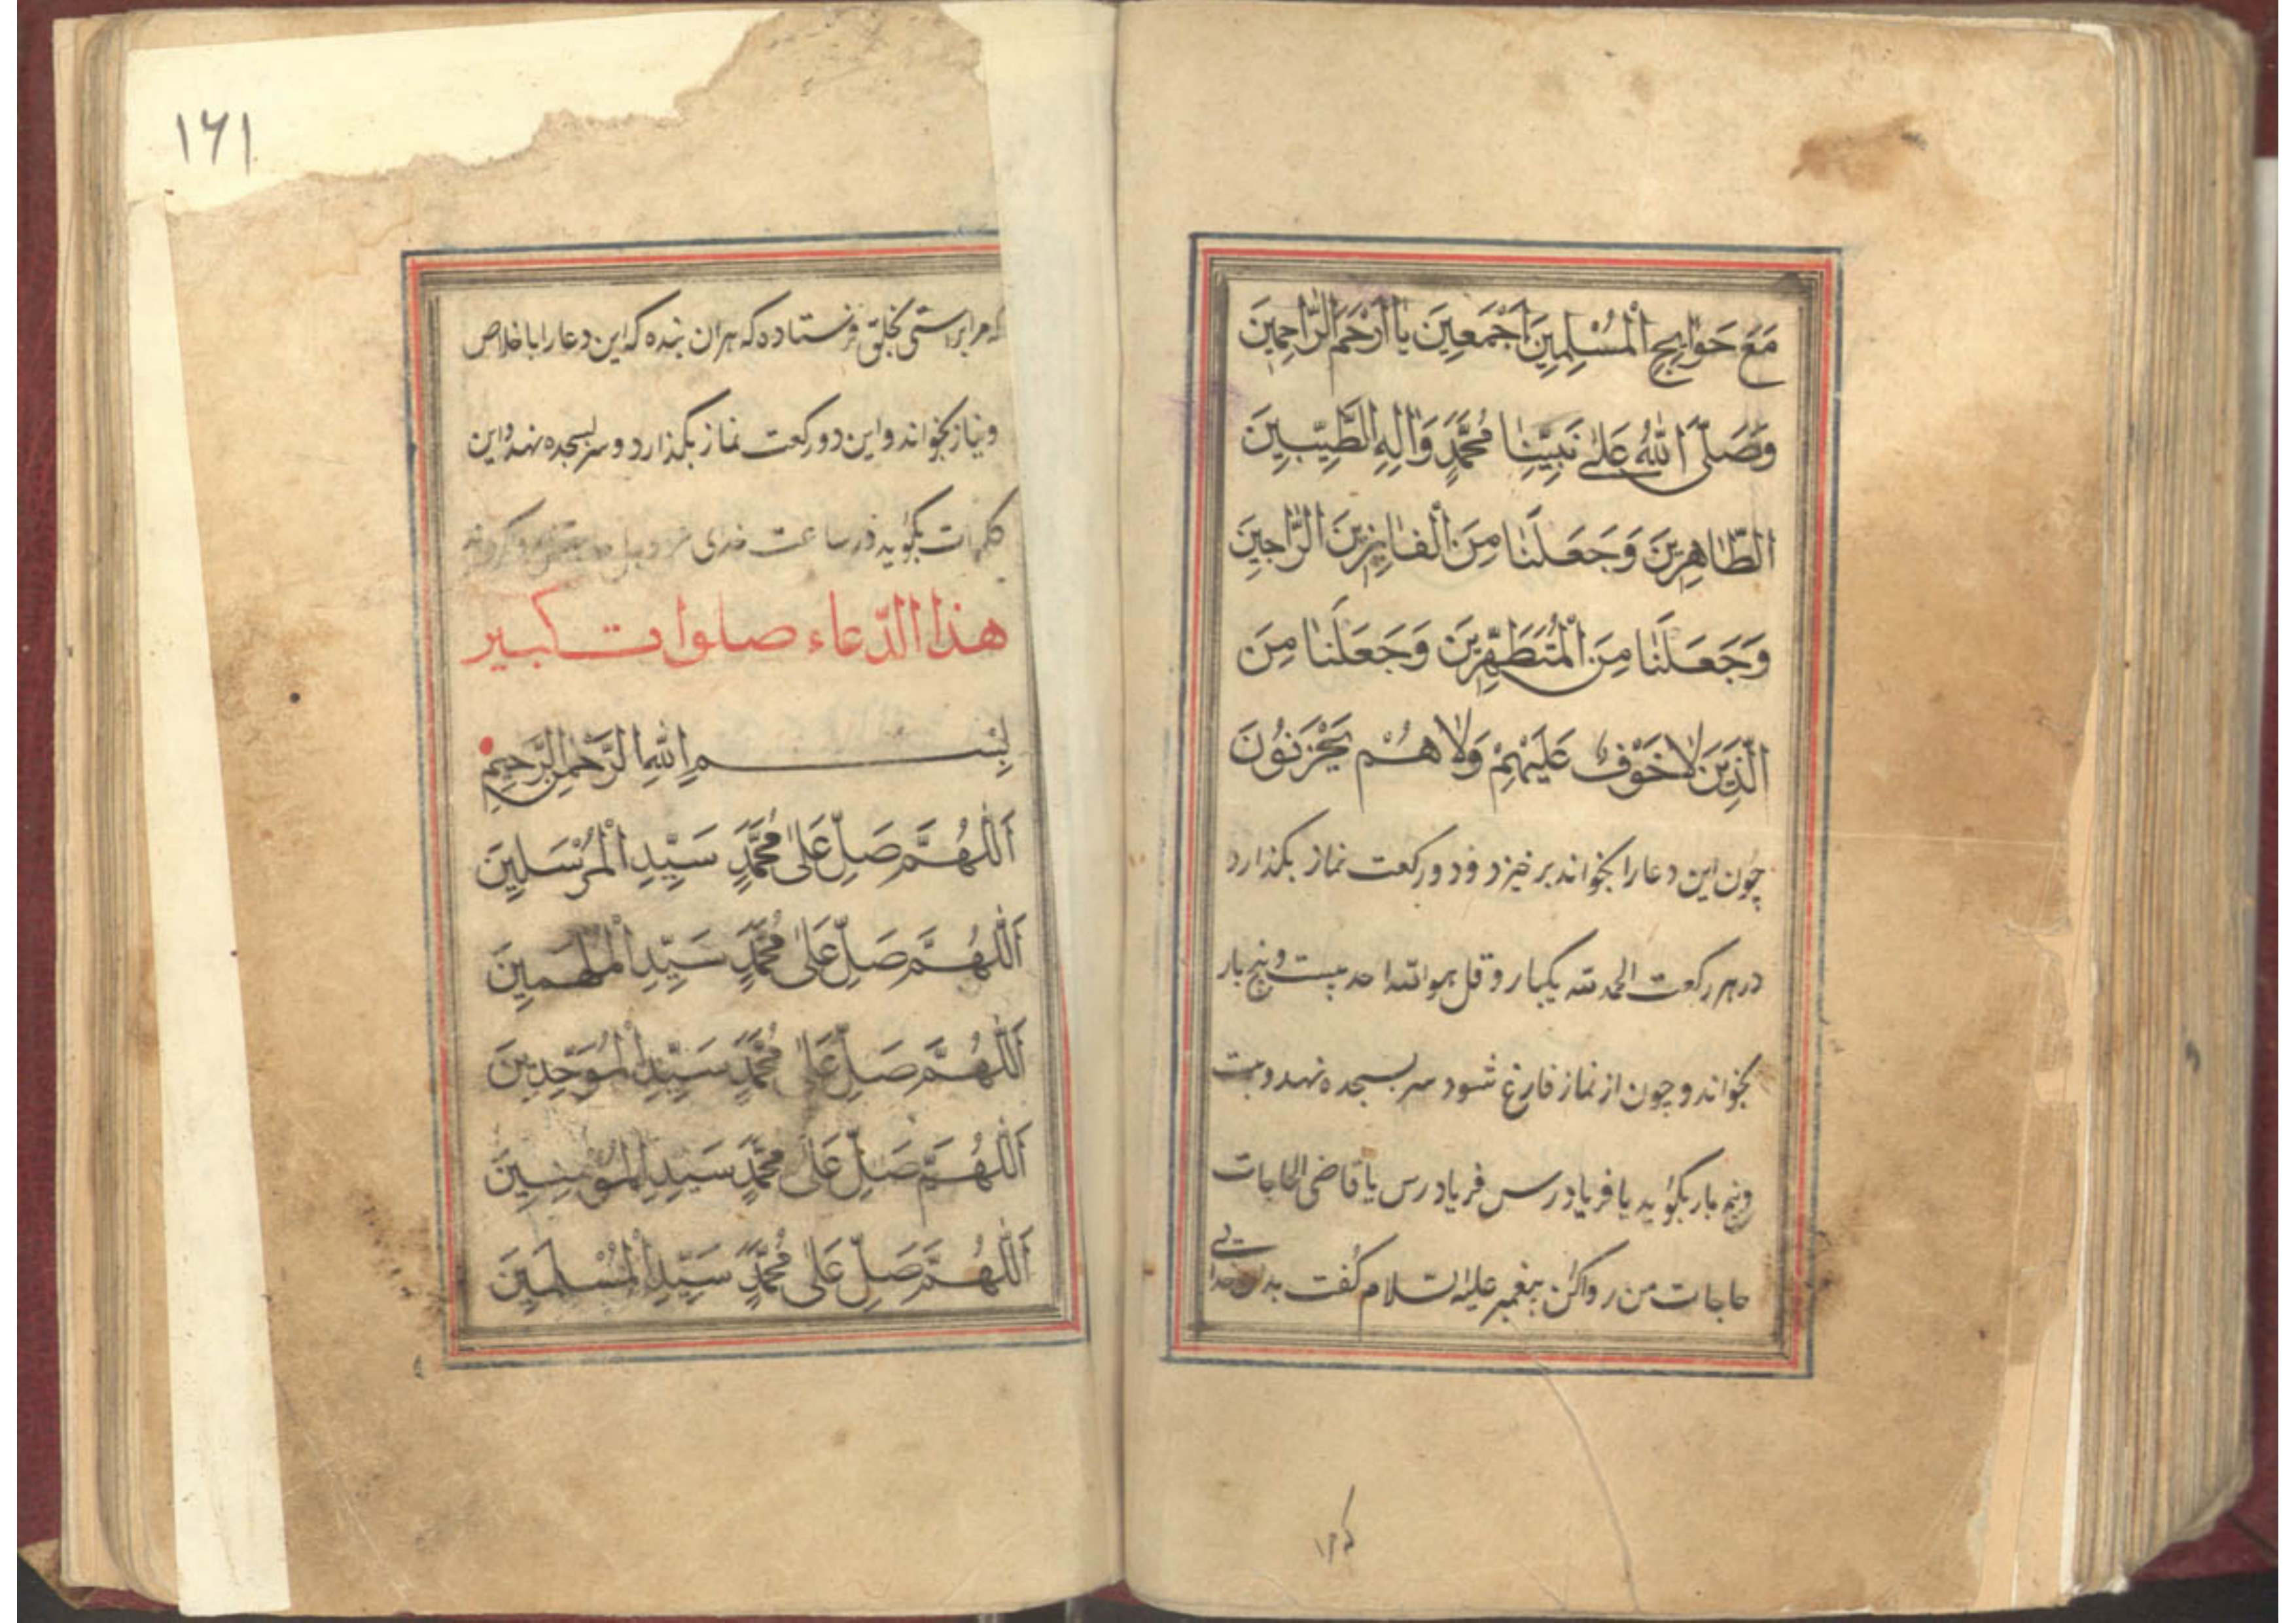 مَعَ حَوَایِجِ الْمُسْلِمِینَ اَجْمَعِینَ یٰا اَرْحَمَ الرّٰاحِمِینَ
وَصَلَّی اللّٰهُ عَلیٰ نَبِیِّنٰا مُحَمَّدٍ وَاٰلِهِ الطَّیِّبِینَ
الطّٰاهِرِینَ وَجَعَلَنٰا مِنَ الْفٰائِزِینَ الرّٰاجِینَ
وَجَعَلَنٰا مِنَ الْمُتَطَهِّرِینَ وَجَعَلَنٰا مِنَ
الَّذِینَ لاٰ خَوْفٌ عَلَیْهِمْ وَلاٰ هُمْ یَحْزَنُونَ
چون این دعا را بخواند برخیزد و دو رکعت نماز بگذارد
در هر رکعت الحمد لله یکبار و قل هو الله احد بیست و پنج بار
بخواند و چون از نماز فارغ شود سر بسجده نهد و بیست
و پنج بار بگوید یا فریادرس فریادرس یا قاضی الحاجات
حاجات من روا کن پیغمبر علیه السلام گفت بدان خدایی
که مرا
۱۶۱
که مرا براستی بخلق فرستاده که هر ان بنده که این دعا را باخلاص
و نیاز بخواند و این دو رکعت نماز بگذارد و سر بسجده نهد و این
کلمات بگوید در ساعت
هذا الدّعاء صلوات کبیر
بِسْمِ اللهِ الرَّحْمٰنِ الرَّحِیمِ
اَللّٰهُمَّ صَلِّ عَلیٰ مُحَمَّدٍ سَیِّدِ الْمُرْسَلِینَ
اَللّٰهُمَّ صَلِّ عَلیٰ مُحَمَّدٍ سَیِّدِ الْمُلْهَمِینَ
اَللّٰهُمَّ صَلِّ عَلیٰ مُحَمَّدٍ سَیِّدِ الْمُوَحِّدِینَ
اَللّٰهُمَّ صَلِّ عَلیٰ مُحَمَّدٍ سَیِّدِ الْمُؤْمِنِینَ
اَللّٰهُمَّ صَلِّ عَلیٰ مُحَمَّدٍ سَیِّدِ الْمُسْلِمِینَ